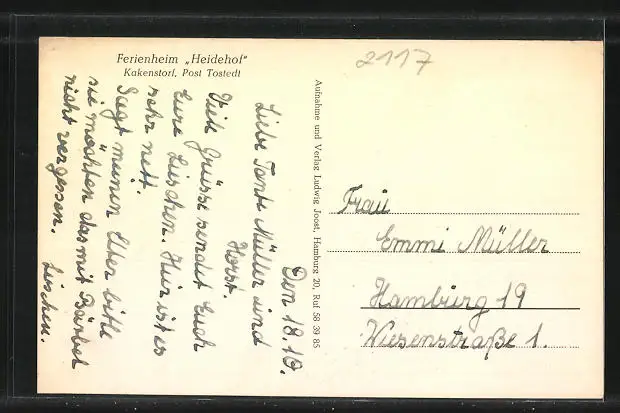 Ferienheim „Heidehof"
Kakenstorf, Post Tostedt
2117
Den 18.10.
Liebe Tante Müller und
Horst.
Viele Grüsse sendet Euch
Eure Lieschen. Hier ist es
sehr nett.
Sagt meinen Eltern bitte
sie möchten das mit Bärbel
nicht vergessen. Lieschen.
Aufnahme und Verlag Ludwig Joost, Hamburg 20, Ruf 58 39 85
Frau
Emmi Müller
Hamburg 19
Wiesenstraße 1.